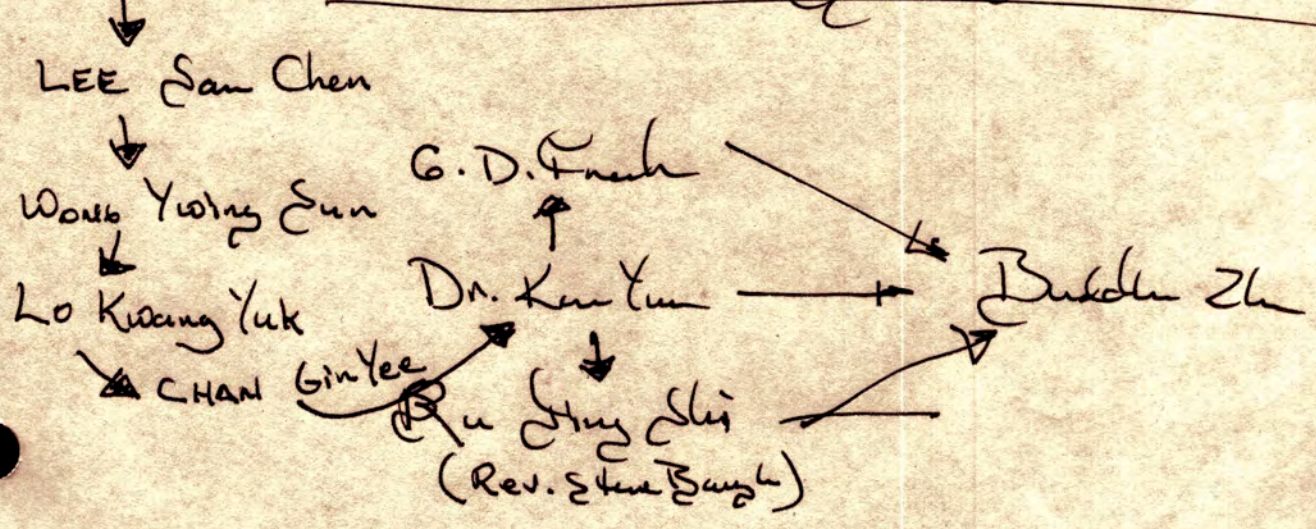 LEE Sam Chen
Wong Ywing Sun
Lo Kwang Yuk
CHAN Gin Yee
G.D. French
Dr. Kam Yuen
Ru Jing Shi
(Rev. Steve Baugh)
Buddha Zhen